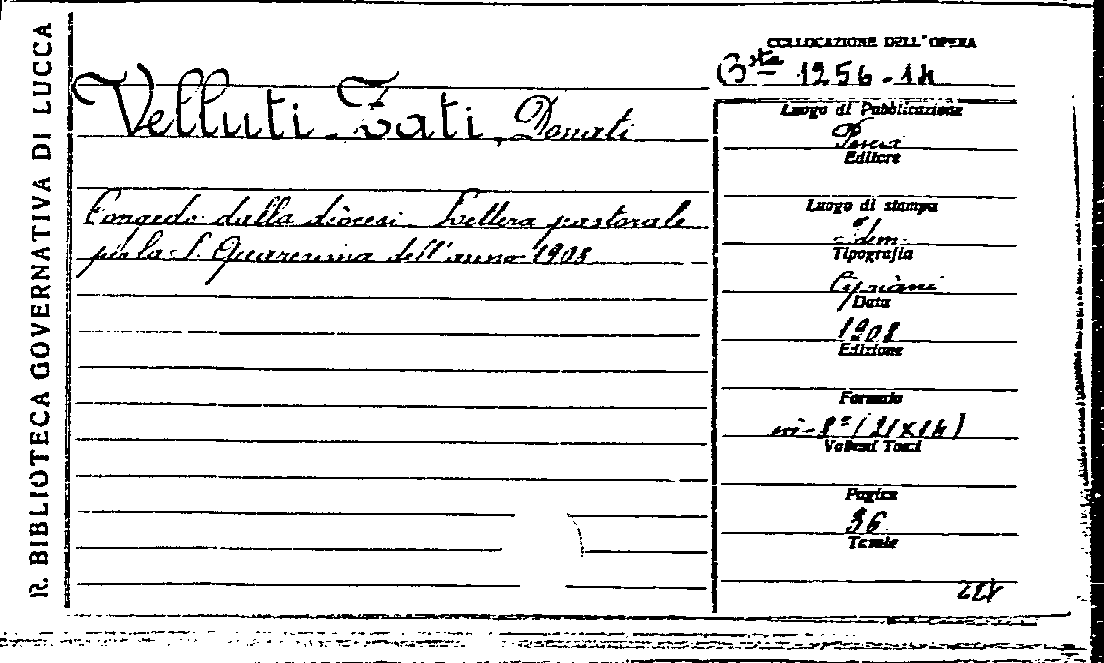 R. BIBLIOTECA GOVERNATIVA DI LUCCA
Velluti-Zati, Donati
Congedo dalla diocesi. Lettera pastorale
per la S. Quaresima dell'anno 1908
COLLOCAZIONE DELL'OPERA
Bsta 1256-14
Luogo di Pubblicazione
Pescia
Editore
Luogo di stampa
Idem
Tipografia
Cipriani
Data
1908
Edizione
Formato
in-8° (21x14)
Volumi Tomi
Pagine
36
Tavole